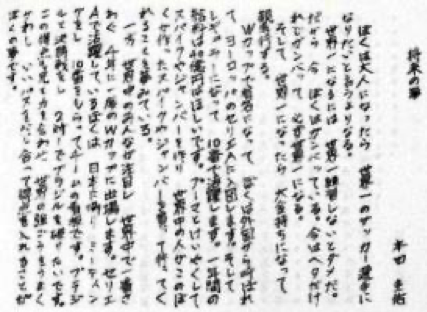 将来の夢
本田 圭佑
ぼくは大人になったら 世界一のサッカー選手に
なりたいと言うよりなる。
世界一になるには 世界一練習しないとダメだ。
だから 今 ぼくはガンバっている。今はヘタだけ
れどガンバって 必ず世界一になる。
そして 世界一になったら 大金持ちになって
親孝行する。
Wカップで有名になって ぼくは外国から呼ばれ
て ヨーロッパのセリエAに入団します。そして
レギュラーになって 10番で活躍します。一年間の
給料は40億円はほしいです。プーマとけいやくして
スパイクやジャンバーを作り 世界中の人がこのぼ
くが作ったスパイクやジャンバーを買って行ってく
れることを夢みている。
一方 世界中のみんなが注目し 世界中で一番さ
わぐ 4年に一度のWカップに出場します。セリエ
Aで活躍しているぼくは 日本に帰り ミーティン
グをし 10番をもらってチームの看板です。ブラジ
ルと決勝戦をし 2対1でブラジルを破りたいです。
この得点も兄と力を合わせ 世界の強ごうをうまく
かわし いいパスをだし合って得点を入れることが
ぼくの夢です。